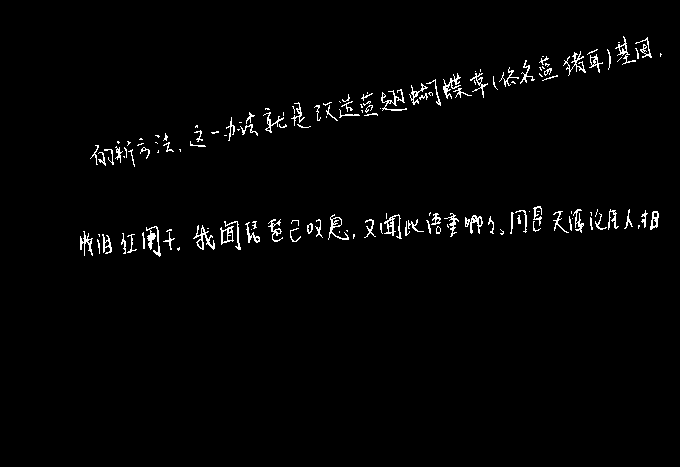 的新方法,这一办法就是改造蓝翅蝴蝶草(俗名蓝猪耳)基因,
妆泪红阑干。我闻琵琶已叹息,又闻此语重唧唧。同是天涯沦落人,相